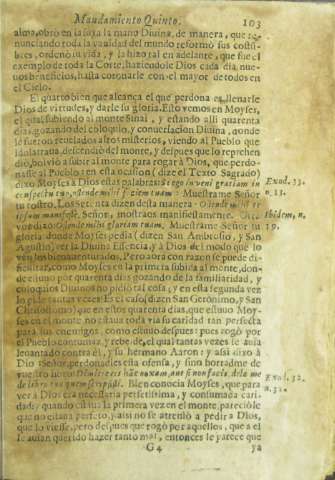 Mandamiento Quinto. 103
alma, obrò en la suya la mano Diuina, de manera, que re-
nunciando toda la vanidad del mundo reformò sus costũ-
bres, ordenò tu vida, y la hizo tal en adelante, que fue el
exemplo de toda la Corte, haziendole Dios cada dia nue-
uos beneficios, hasta coronarle con el mayor de todos en
el Cielo.
El quarto bien que alcança el que perdona es llenarle
Dios de virtudes, y darle su gloria. Esto vemos en Moyses,
el qual subiendo al monte Sinai, y estando alli quarenta
dias gozando del coloquio, y conuersacion Diuina, donde
le fueron reuelados altos misterios, viendo al Pueblo que
idolatraua, descendiò del monte, y despues que lo reprehen
diò, boluiò a subir al monte para rogar à Dios, que perdo-
nasse al Pueblo: en esta ocasion (dize el Texto Sagrado)
dixo Moyses à Dios estas palabras: Si ego inueni gratiam in
conspectu tuo, ostende mihi faciem tuam: Muestrame Señor
tu rostro. Los Setenta dizen desta manera: Ostende mihi te
ipsum manifestè. Señor, mostraos manifiestamente. Otra
voz dixo: Ostende mihi gloriam tuam, Muestrame Señor tu
gloria donde Moyses pedia (dizen San Ambrosio, y San
Agustin) ver la Diuina Essencia, y à Dios del modo que lo
vèn los bienauenturados. Pero aora con razon se puede di-
ficultar, como Moyses en la primera subida al monte, don-
de estuuo por quarenta dias gozando de la familiaridad, y
coloquios Diuinos no pidiò tal cosa, y en esta segunda vez
lo pide tantas vezes? Es el caso (dizen San Geronimo, y San
Chrisostomo) que en estos quarenta dias, que estuuo Moy-
ses en el monte no estaua toda via su caridad tan perfecta
para sus enemigos, como estuuo despues: pues rogò por
el Pueblo contumaz, y rebelde, el qual tantas vezes se auia
leuantado contra èl, y su hermano Aaron: y assi dixo à
Dios: Señor, perdonadles esta ofensa, y sino borradme de
vuestro libro: Dimitte eis hanc noxam, aut si non facis, dele me
de libro tuo quem scripsisti. Bien conocia Moyses, que para
ver à Dios era necessaria perfetissima, y consumada cari-
dad: y quando estaua la primera vez en el monte, pareciòle
que no estaua perfeto, y assi no se atreuiò a pedir a Dios,
que lo viesse, pero despues que rogò por aquellos, que a el
le auian querido hazer tanto mal, entonces le parece que
G 4 ya
Exod. 33.
n. 13.
Ibidem, n.
19.
Exod. 32.
n. 32.